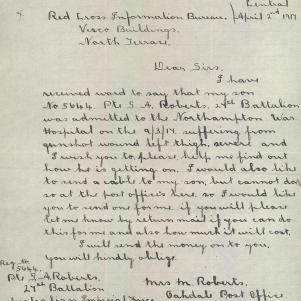 Central
Red Cross Information Bureau, April 2nd 1917
Vesco Buildings,
North Terrace.
Dear Sirs,
I have
received word to say that my son
No 5644. Pte G. A. Roberts, 27th Battalion
was admitted to the Northampton War
Hospital on the 9/3/17, suffering from
gunshot wound left thigh, severe and
I wish you to, please, help me find out
how he is getting on. I would also like
to send a cable to my son, but cannot do
so at the post office here, so I would like
you to send one for me. if you will please
let me know by return mail if you can do
this for me and also how much it will cost.
I will send the money on to you,
you will kindly oblige.
Reg. No
5644.
Pte G. A. Roberts, Mrs M. Roberts,
27th Battalion Oakdale Post Office
Australian Imperial Force